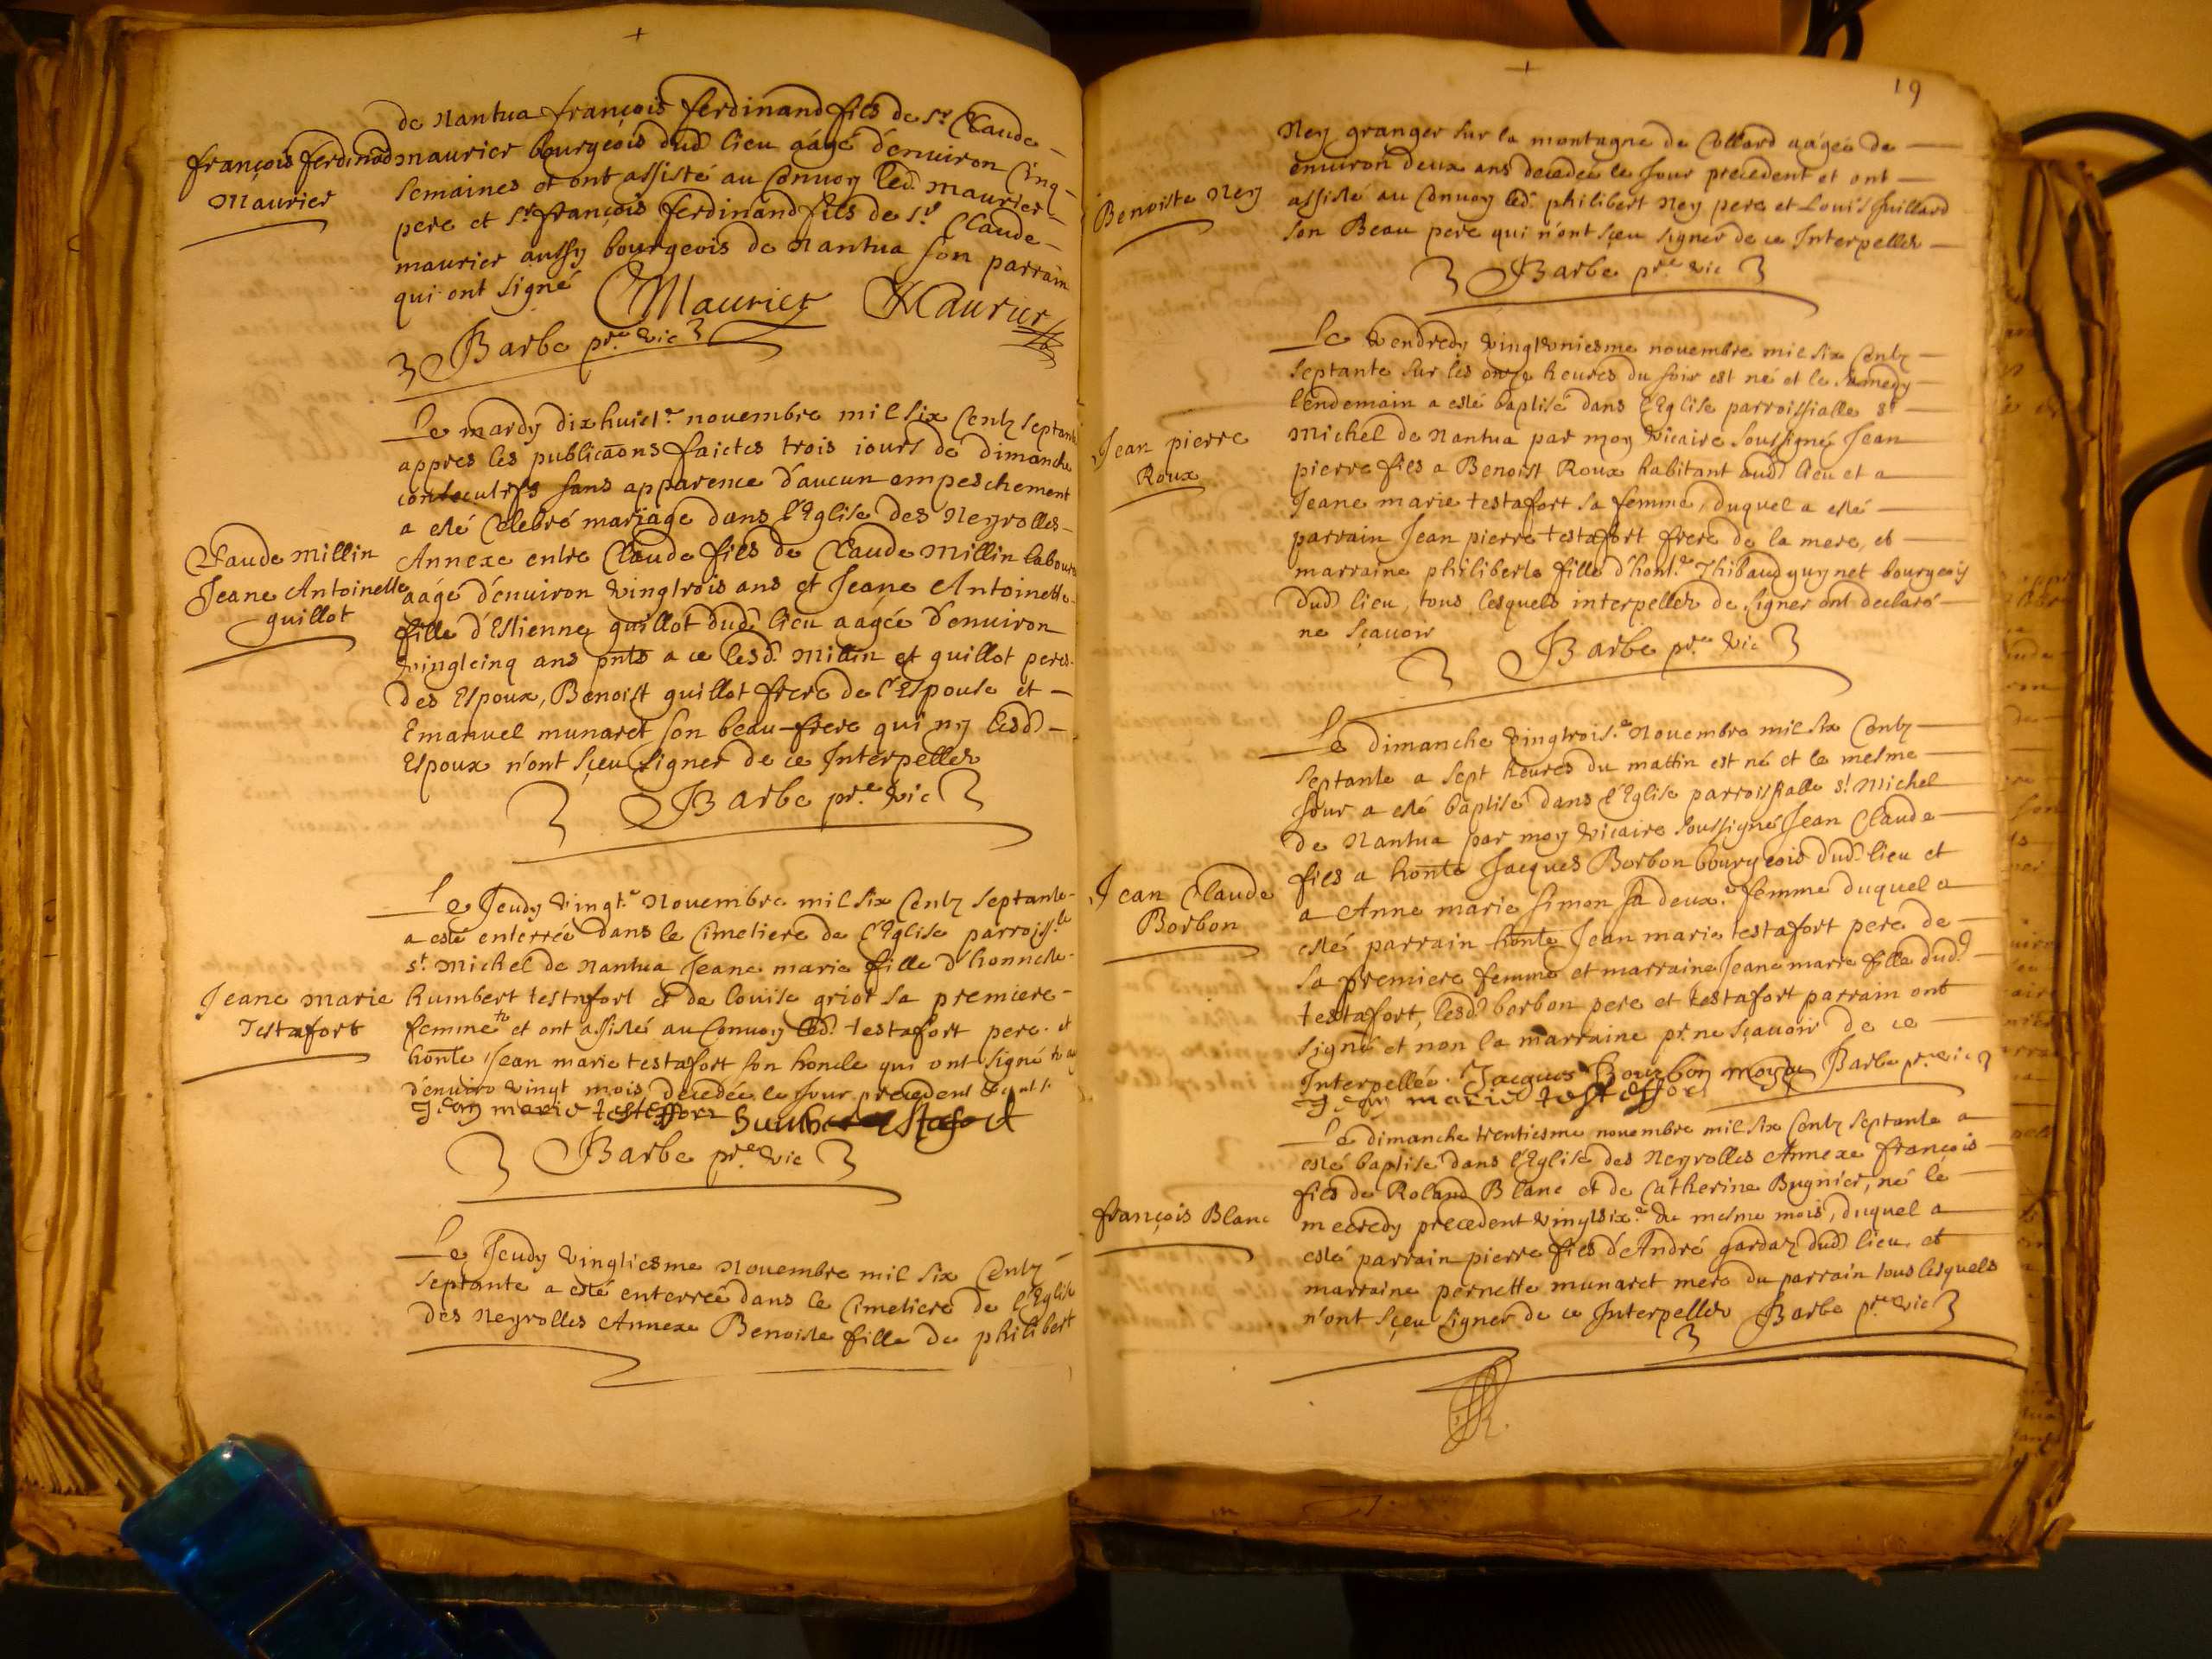 de Nantua françois ferdinand fils de Sr. Claude
françois ferdinād
Maurier
maurier bourgeois dud. lieu aágé d'enuiron Cinq
semaines et ont assisté au Conuoy led. maurier
pere et Sr. françois ferdinand fils de Sr. Claude
maurier aussy bourgeois de Nantua son parrain
qui ont signé CMaurier Maurier
Barbe pre. vic
Le mardy dixhuict.e nouembre mil six Centz septante
appres les publicāons faictes trois iours de dimanche
consecutifs sans apparence d'aucun empeschement
a esté Celebré mariage dans l'Eglise des Neyrolles
Claude Millin
Jeane Antoinette
guillot
Annexe entre Claude fils de Claude Millin labour
aágé d'enuiron vingtrois ans et Jeane Antoinette
fille d'Estienne guillot dud. lieu aágée d'enuiron
vingtcinq ans pnts a ce lesd. Millin et guillot peres
des Espoux, Benoist guillot frere de l'Espouse et
Emanuel munaret son beau-frere qui ny lesd.
Espoux n'ont sçeu signer de ce Interpellés
Barbe pre. vic
Le Jeudy vingt.e Nouembre mil six Centz septante
a esté enterrée dans le Cimetiere de l'Eglise parroiss.le
St. Michel de Nantua Jeane marie fille d'honneste
Jeane Marie
Testafort
humbert testafort et de louise griot sa premiere
femme et ont assisté au Conuoy led. testafort pere et
honte Jean marie testafort son honcle qui ont signé
d'enuiro vingt mois decedée le Jour precedent
Jean marie testeffort humbert testafort
Barbe pre. vic
Le Jeudy vingtiesme Nouembre mil six Centz
septante a esté enterreé dans le Cimetiere de l'Eglise
des Neyrolles Annexe Benoiste fille de philibert
19
Ney granger sur la montagne de Collard aágée de
enuiron deux ans decedée le Jour precedent et ont
Benoiste Ney
assisté au Conuoy led. philibert Ney pere et Louis Juillard
son Beau pere qui n'ont sçeu signer de ce Interpellés
Barbe pre. vic
Le Vendredy vingtvniesme nouembre mil six Centz
septante sur les onze heures du soir est né et le samedy
lendemain a esté baptisé dans l'Eglise parroissialle St
Jean pierre
Roux
Michel de Nantua par moy Vicaire soussigné Jean
pierre fils a Benoist Roux habitant aud. lieu et a
Jeane marie testafort sa femme, duquel a esté
parrain Jean pierre testafort frere de la mere, et
marraine philiberte fille d'hont.e Thibaud guynet bourgeois
dud. lieu, tous lesquels interpellés de signer ont declaré
ne sçauoir Barbe pre. vic
Le dimanche vingtrois.e Nouembre mil six Centz
septante a sept heures du mattin est né et le mesme
Jour a esté baptisé dans l'Eglise parroissialle St Michel
de Nantua par moy vicaire soussigné Jean Claude
Jean Claude
Borbon
fils a honte Jacques Borbon bourgeois dud. lieu et
a Anne marie Simon sa deux.e femme duquel a
esté parrain honte Jean marie testafort pere de
sa premiere femme et marraine Jeane marie fille dud.
testafort, lesd. borbon pere et testafort parrain ont
signé et non la marraine pr. ne sçauoir de ce
Interpellée. Jacques Bourbon Barbe pre vic
Jean marie testeffort
Le dimanche trentiesme nouembre mil six Centz septante a
esté baptisé dans l'Eglise des Neyrolles Annexe françois
françois Blanc
fils de Roland Blanc et de Catherine Bugnier, né le
mecredy precedent vingtsix.e du mesme mois, duquel a
esté parrain pierre fils d'André gardaz dud. lieu et
marraine pernette munaret mere du parrain tous lesquels
n'ont sçeu signer de ce Interpellés Barbe pre. vic